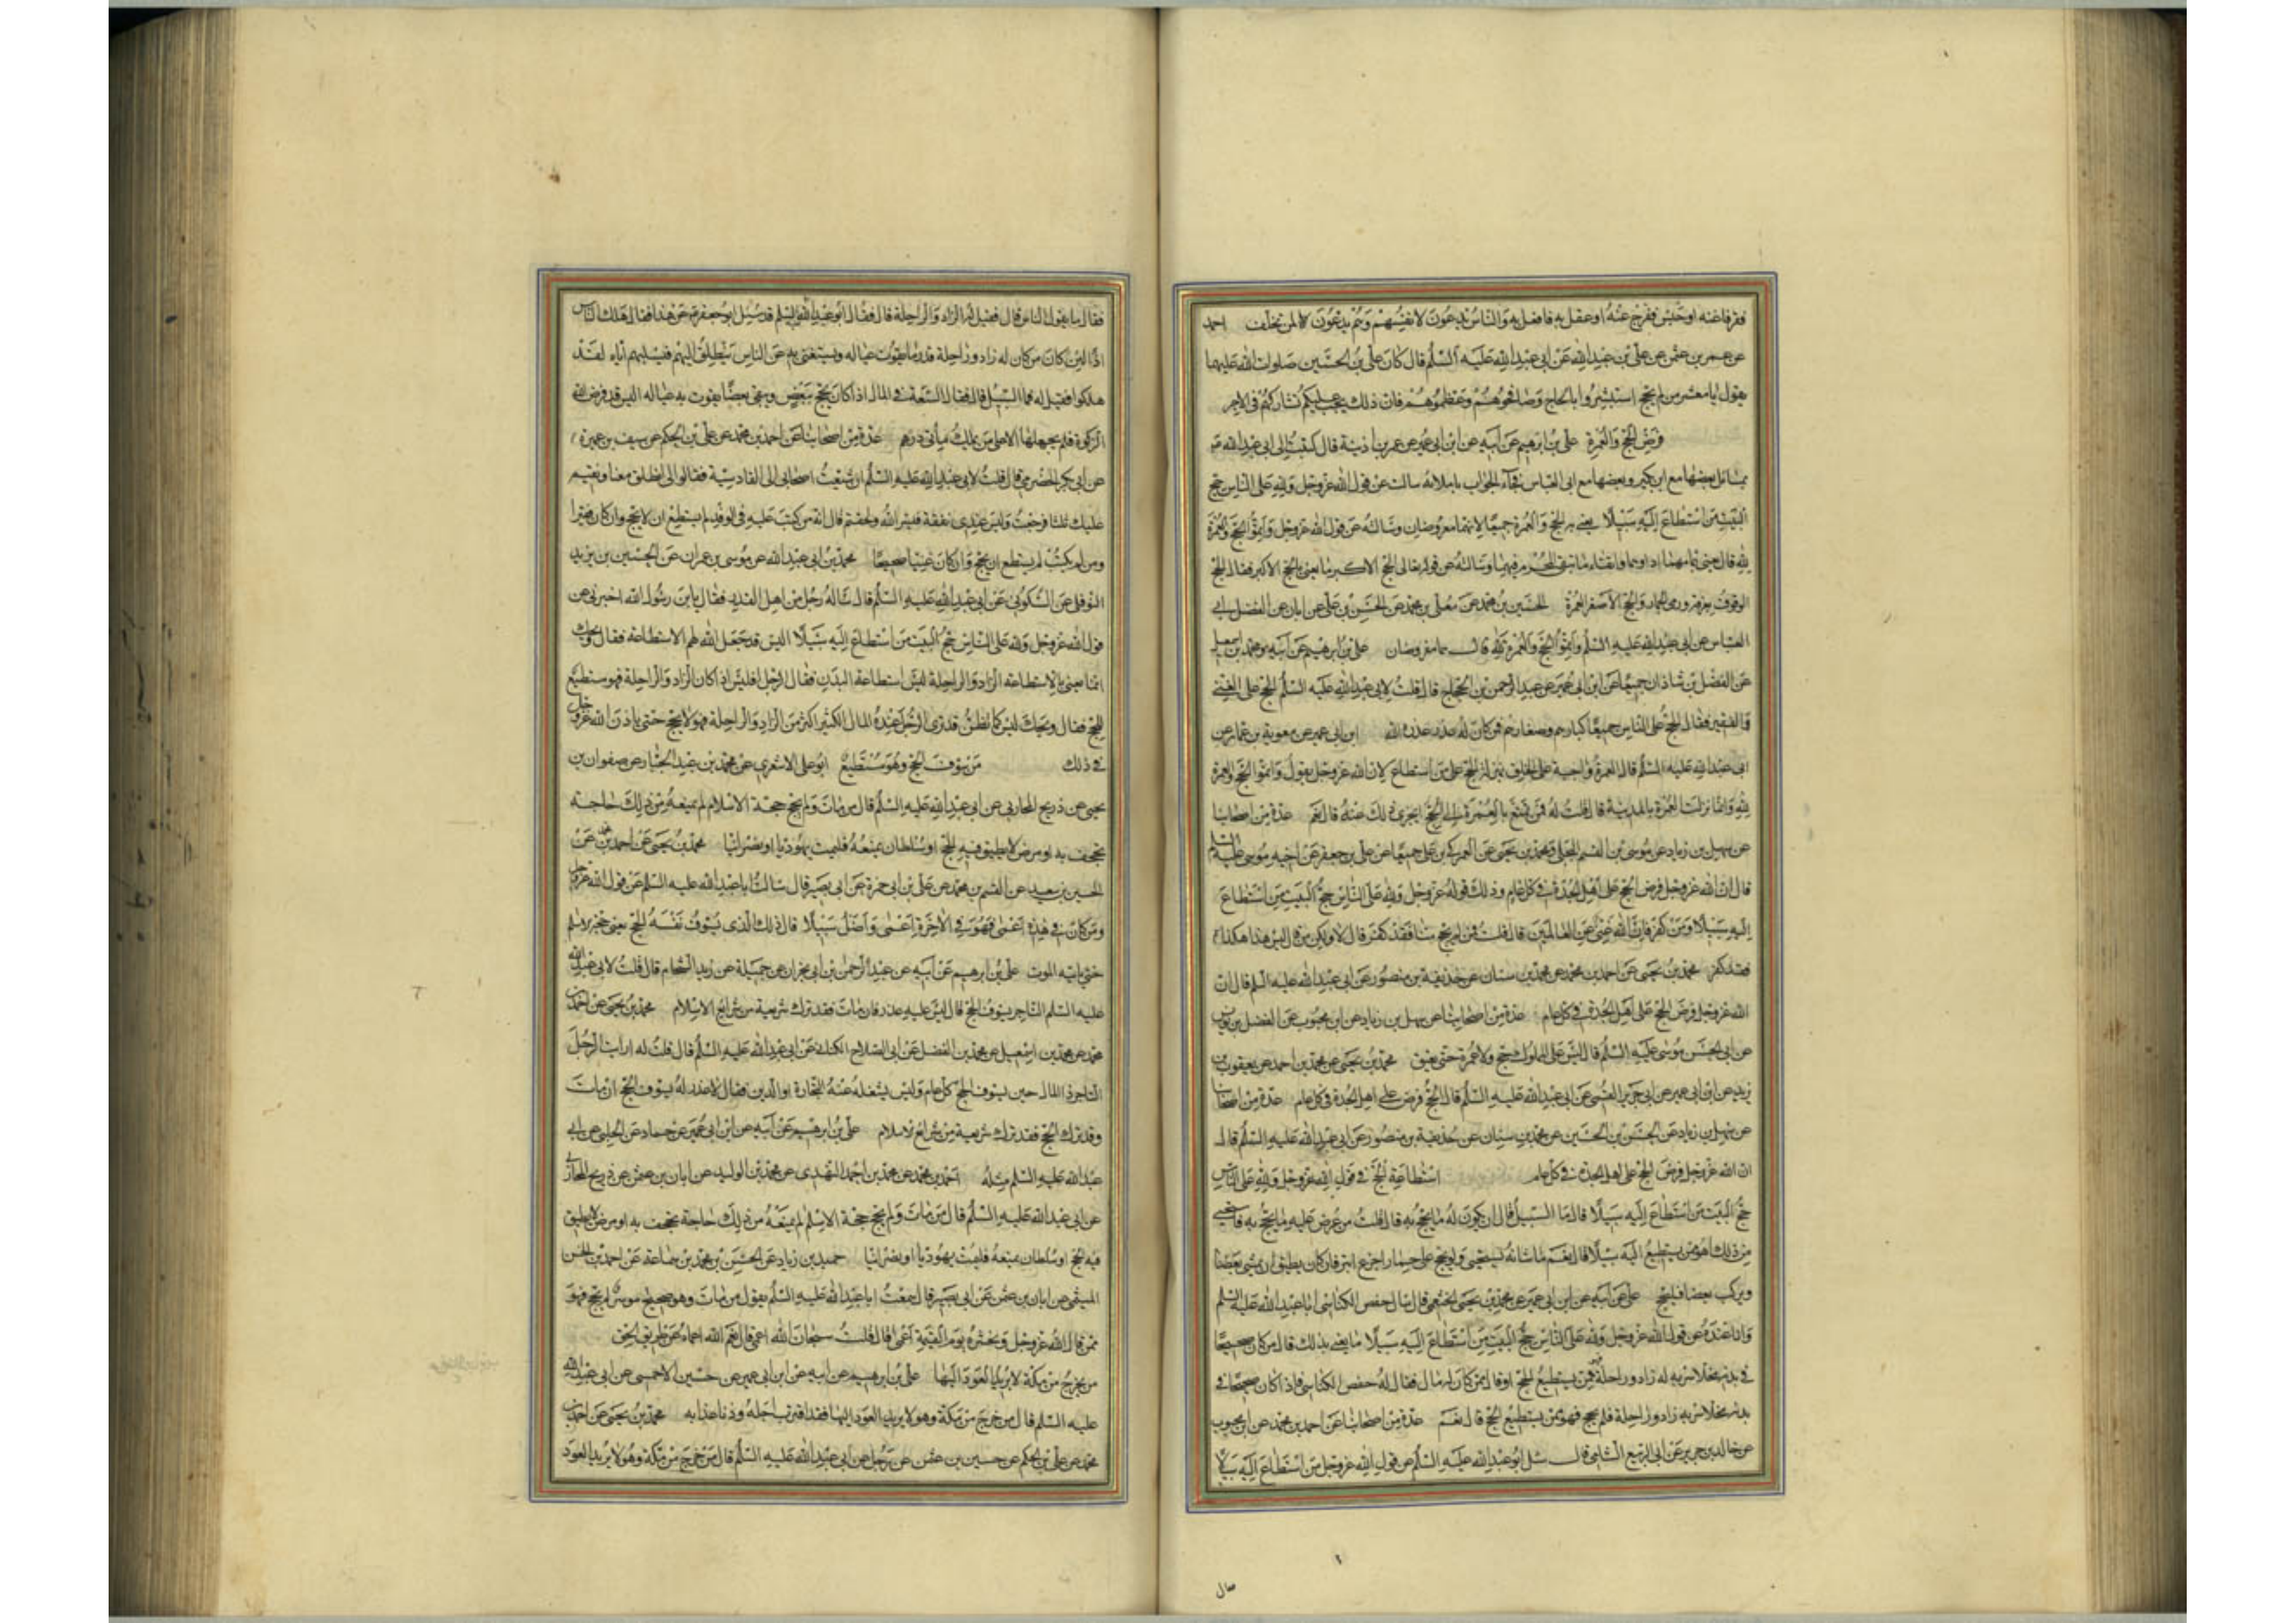 ففرفاغنه او حبس ففرج عنه او عقل به فاضل به والناس يدعون لانفسهم وهم يدعون لا لمن تخلف احمد
عن عمر بن عثمن عن علي بن عبد الله عن ابي عبد الله عليه السلم قال كان علي بن الحسين صلوات الله عليهما
يقول يا معشر من لم يحج استبشروا بالحاج وصافحوهم وعظموهم فان ذلك يجب عليكم تشاركهم في الاجر
فرض الحج والعمرة علي بن ابرهيم عن ابيه عن ابن ابي عمير عن عمر بن اذينة قال كتبت الى ابي عبد الله
بمسائل بعضها مع ابن بكير وبعضها مع ابي العباس فجاء الجواب باملائه سالت عن قول الله عز وجل ولله على الناس حج
البيت من استطاع اليه سبيلا يعني به الحج والعمرة جميعا لانهما مفروضان وسالته عن قول الله عز وجل واتموا الحج والعمرة
لله قال يعني بتمامهما اداءهما واتقاء ما يتقي المحرم فيهما وسالته عن قوله تعالى الحج الاكبر ما يعني بالحج الاكبر فقال الحج
الوقوف بعرفة ورمي الجمار والحج الاصغر العمرة الحسين بن محمد عن معلى بن محمد عن الحسن بن علي عن ابان عن الفضل ابي
العباس عن ابي عبد الله عليه السلم واتموا الحج والعمرة لله قال هما مفروضان علي بن ابرهيم عن ابيه ومحمد بن اسمعيل
عن الفضل بن شاذان جميعا عن ابن ابي عمير عن عبد الرحمن بن الحجاج قال قلت لابي عبد الله عليه السلم الحج على الغني
والفقير فقال الحج على الناس جميعا كبارهم وصغارهم فمن كان له عذر عذره الله ابن ابي عمير عن معوية بن عمار عن
ابي عبد الله عليه السلم قال العمرة واجبة على الخلق بمنزلة الحج على من استطاع لان الله عز وجل يقول واتموا الحج والعمرة
لله وانما نزلت العمرة بالمدينة قال قلت له فمن تمتع بالعمرة الى الحج ايجزي ذلك عنه قال نعم عدة من اصحابنا
عن سهل بن زياد عن موسى بن القسم البجلي ومحمد بن يحيى عن العمركي بن علي جميعا عن علي بن جعفر عن اخيه موسى عليه السلم
قال ان الله عز وجل فرض الحج على اهل الجدة في كل عام وذلك قوله عز وجل ولله على الناس حج البيت من استطاع
اليه سبيلا ومن كفر فان الله غني عن العالمين قال قلت فمن لم يحج منا فقد كفر قال لا ولكن من قال ليس هذا هكذا
فقد كفر محمد بن يحيى عن احمد بن محمد عن محمد بن سنان عن حذيفة بن منصور عن ابي عبد الله عليه السلم قال ان
الله عز وجل فرض الحج على اهل الجدة في كل عام عدة من اصحابنا عن سهل بن زياد عن ابن محبوب عن الفضل بن يونس
عن ابي الحسن موسى عليه السلم قال ليس على المملوك حج ولا عمرة حتى يعتق محمد بن يحيى عن محمد بن احمد عن يعقوب بن
يزيد عن ابن ابي عمير عن ابي جرير القمي عن ابي عبد الله عليه السلم قال الحج فرض على اهل الجدة في كل عام عدة من اصحابنا
عن سهل بن زياد عن الحسن بن الحسين عن محمد بن سنان عن حذيفة بن منصور عن ابي عبد الله عليه السلم قال
ان الله عز وجل فرض الحج على اهل الجدة في كل عام استطاعة الحج في قول الله عز وجل ولله على الناس
حج البيت من استطاع اليه سبيلا قال ما السبيل قال ان يكون له ما يحج به قال قلت من عرض عليه ما يحج به فاستحيى
من ذلك اهو ممن يستطيع اليه سبيلا قال نعم ما شانه يستحيي ولو يحج على حمار اجدع ابتر فان كان يطيق ان يمشي بعضا
ويركب بعضا فليحج علي عن ابيه عن ابن ابي عمير عن محمد بن يحيى الخثعمي قال سال حفص الكناسي ابا عبد الله عليه السلم
وانا عنده عن قول الله عز وجل ولله على الناس حج البيت من استطاع اليه سبيلا ما يعني بذلك قال من كان صحيحا
في بدنه مخلا سربه له زاد وراحلة فهو ممن يستطيع الحج او قال ممن كان له مال فقال له حفص الكناسي فاذا كان صحيحا في
بدنه مخلا سربه زاد وراحلة فلم يحج فهو ممن يستطيع الحج قال نعم عدة من اصحابنا عن احمد بن محمد عن ابن محبوب
عن خالد بن جرير عن ابي الربيع الشامي قال سئل ابو عبد الله عليه السلم عن قول الله عز وجل من استطاع اليه سبيلا
فقال ما يقول الناس قال فقيل له الزاد والراحلة قال فقال ابو عبد الله عليه السلم قد سئل ابو جعفر عن هذا فقال هلك الناس
اذا لئن كان من كان له زاد وراحلة قدر ما يقوت عياله ويستغني به عن الناس ينطلق اليهم فيسلبهم اياه لقد
هلكوا فقيل له فما السبيل قال فقال السعة في المال اذا كان يحج ببعض ويبقي بعضا يقوت به عياله اليس قد فرض الله
الزكوة فلم يجعلها الا على من يملك مايتي درهم عدة من اصحابنا عن احمد بن محمد عن علي بن الحكم عن سيف بن عميرة
عن ابي بكر الحضرمي قال قلت لابي عبد الله عليه السلم اني شيعت اصحابي الى القادسية فقالوا لي انطلق معنا ونقيم
عليك ثلثا فرجعت وليس عندي نفقة فيسر الله ولحقتهم قال انه من كتب عليه في الوفد لم يستطع ان لا يحج وان كان فقيرا
ومن لم يكتب لم يستطع ان يحج وان كان غنيا صحيحا محمد بن ابي عبد الله عن موسى بن عمران عن الحسين بن يزيد
النوفلي عن السكوني عن ابي عبد الله عليه السلم قال ساله رجل من اهل القدر فقال يا ابن رسول الله اخبرني عن
قول الله عز وجل ولله على الناس حج البيت من استطاع اليه سبيلا اليس قد جعل الله لهم الاستطاعة فقال ويحك
انما يعني بالاستطاعة الزاد والراحلة ليس استطاعة البدن فقال الرجل افليس اذا كان الزاد والراحلة فهو مستطيع
للحج فقال ويحك ليس كما تظن قد ترى الرجل عنده المال الكثير اكثر من الزاد والراحلة فهو لا يحج حتى ياذن الله عز وجل
في ذلك من سوف الحج وهو مستطيع ابو علي الاشعري عن محمد بن عبد الجبار عن صفوان بن
يحيى عن ذريح المحاربي عن ابي عبد الله عليه السلم قال من مات ولم يحج حجة الاسلام لم يمنعه من ذلك حاجة
تجحف به او مرض لا يطيق فيه الحج او سلطان يمنعه فليمت يهوديا او نصرانيا محمد بن يحيى عن احمد بن محمد عن
الحسين بن سعيد عن القسم بن محمد عن علي بن ابي حمزة عن ابي بصير قال سالت ابا عبد الله عليه السلم عن قول الله عز وجل
ومن كان في هذه اعمى فهو في الاخرة اعمى واضل سبيلا قال ذلك الذي يسوف نفسه الحج يعني حجة الاسلم
حتى ياتيه الموت علي بن ابرهيم عن ابيه عن عبد الرحمن بن ابي نجران عن جميلة عن زيد الشحام قال قلت لابي عبد الله
عليه السلم التاجر يسوف الحج قال ليس عليه عذر فان مات فقد ترك شريعة من شرايع الاسلام محمد بن يحيى عن احمد بن
محمد عن محمد بن اسمعيل عن محمد بن الفضل عن ابي الصلاح الكناني عن ابي عبد الله عليه السلم قال قلت له ارايت الرجل
التاجر ذا المال حين يسوف الحج كل عام وليس يشغله عنه التجارة او الدين فقال لا عذر له يسوف الحج ان مات
وقد ترك الحج فقد ترك شريعة من شرايع الاسلام علي بن ابرهيم عن ابيه عن ابن ابي عمير عن حماد عن الحلبي عن ابي
عبد الله عليه السلم مثله احمد بن محمد عن محمد بن احمد النهدي عن محمد بن الوليد عن ابان بن عثمن عن ذريح المحاربي
عن ابي عبد الله عليه السلم قال من مات ولم يحج حجة الاسلم لم يمنعه من ذلك حاجة تجحف به او مرض لا يطيق
فيه الحج او سلطان يمنعه فليمت يهوديا او نصرانيا حميد بن زياد عن الحسن بن محمد بن سماعة عن احمد بن الحسن
الميثمي عن ابان بن عثمن عن ابي بصير قال سمعت ابا عبد الله عليه السلم يقول من مات وهو صحيح موسر لم يحج فهو
ممن قال الله عز وجل ونحشره يوم القيمة اعمى قال قلت سبحان الله اعمى قال نعم الله اعماه عن طريق الحق
من يخرج من مكة لا يريد العود اليها علي بن ابرهيم عن ابيه عن ابن ابي عمير عن حسين الاحمسي عن ابي عبد الله
عليه السلم قال من خرج من مكة وهو لا يريد العود اليها فقد اقترب اجله ودنا عذابه محمد بن يحيى عن احمد بن
محمد عن علي بن الحكم عن حسين بن عثمن عن رجل عن ابي عبد الله عليه السلم قال من خرج من مكة وهو لا يريد العود